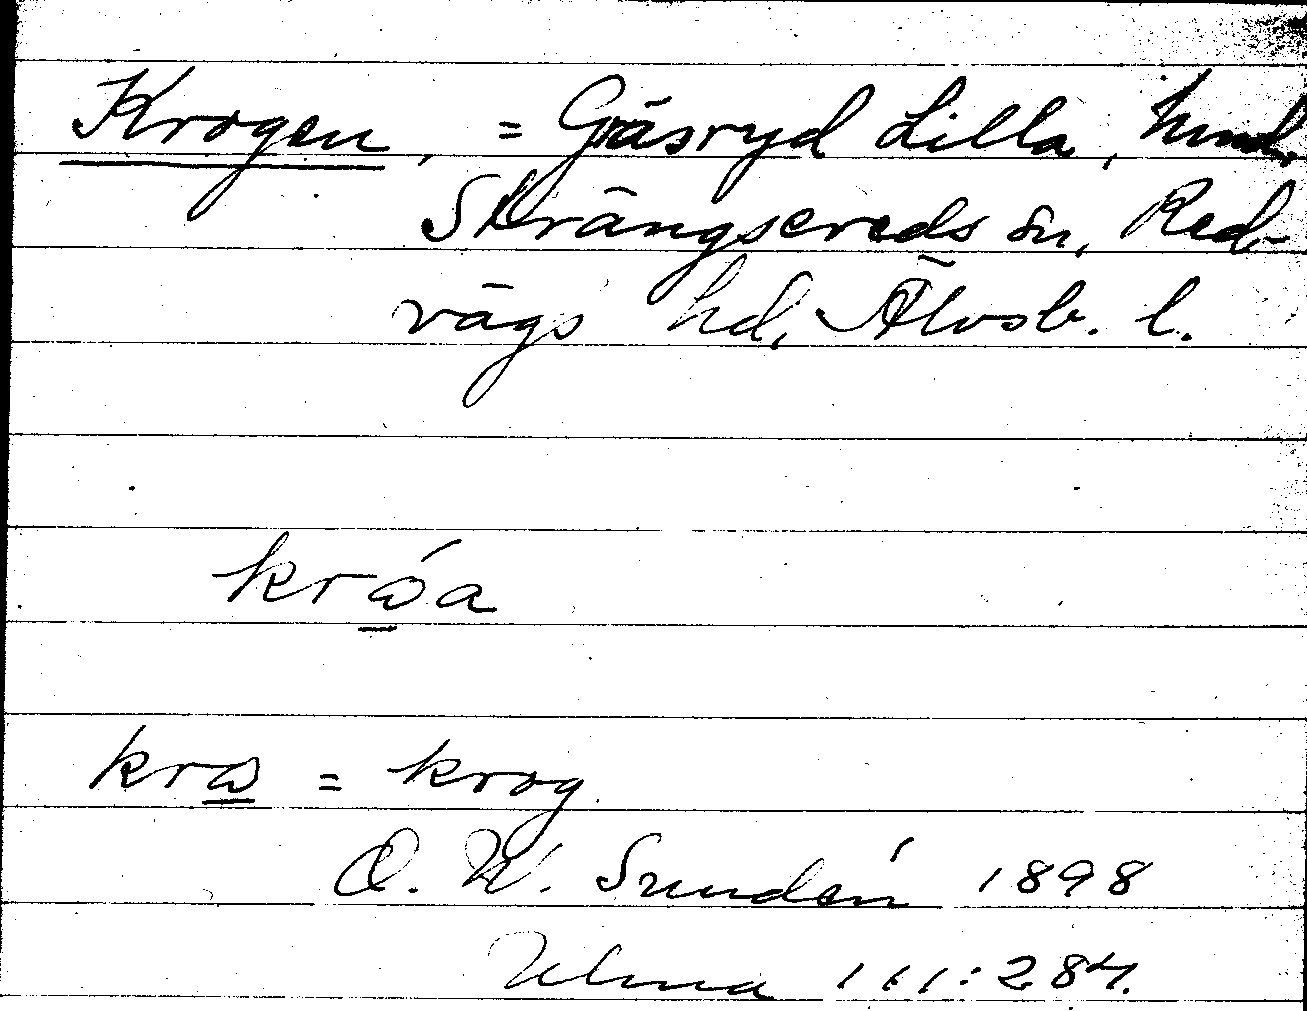 Krogen, = Gräsryd Lilla, hmd,
Strängsereds sn, Red-
vägs hd, Älvsb. l.
krώa
krω = krog
O. W. Sundén 1898
Ulma 111:284.